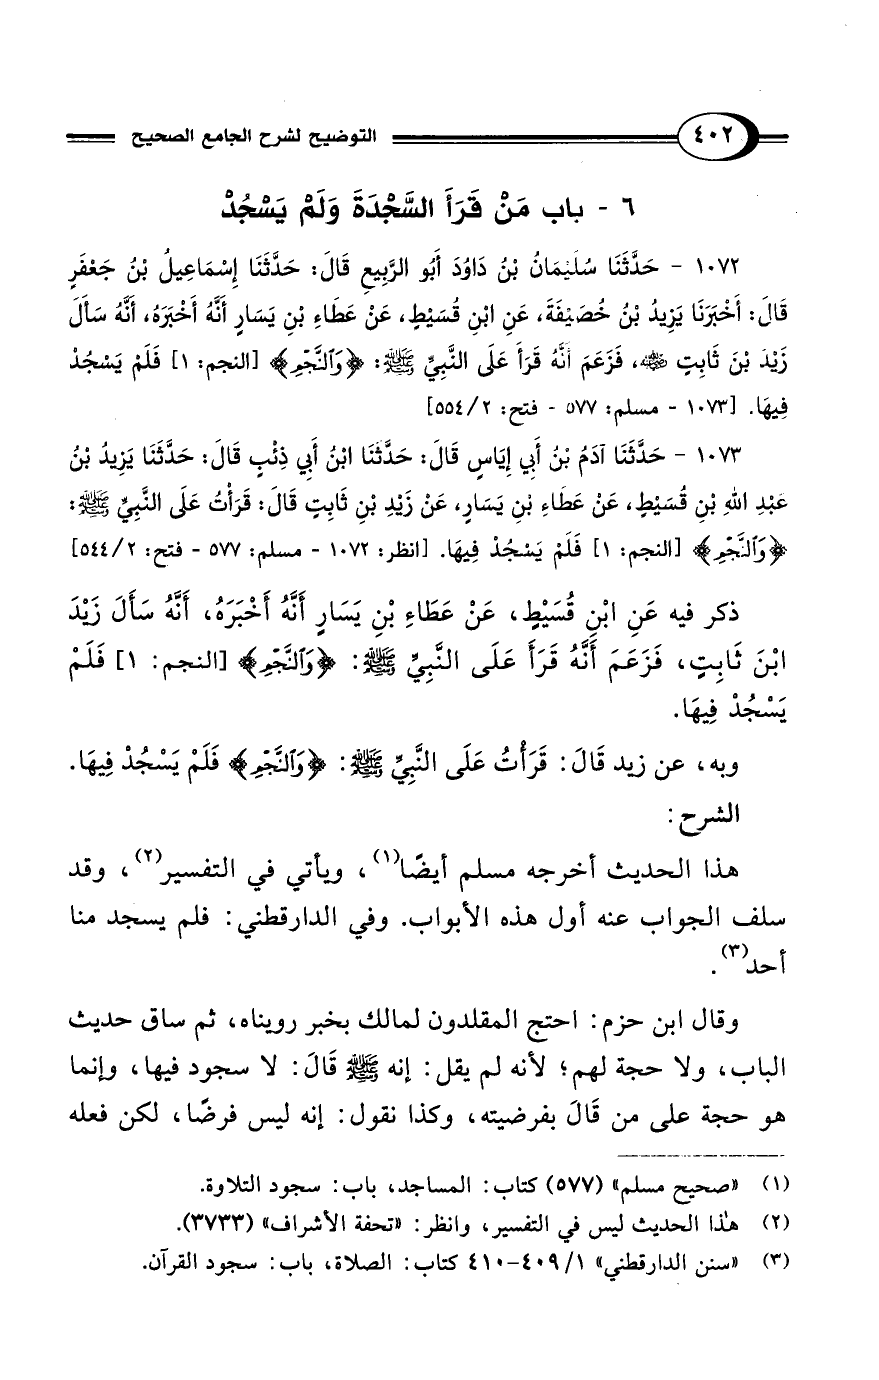 ٤٠٢ التوضيح لشرح الجامع الصحيح
٦ - باب مَنْ قَرَأَ السَّجْدَةَ وَلَمْ يَسْجُدْ
١٠٧٢ - حَدَّثَنَا سُلَيْمَانُ بْنُ دَاوُدَ أَبُو الرَّبِيعِ قَالَ: حَدَّثَنَا إِسْمَاعِيلُ بْنُ جَعْفَرٍ
قَالَ: أَخْبَرَنَا يَزِيدُ بْنُ خُصَيْفَةَ، عَنِ ابْنِ قُسَيْطٍ، عَنْ عَطَاءِ بْنِ يَسَارٍ أَنَّهُ أَخْبَرَهُ، أَنَّهُ سَأَلَ
زَيْدَ بْنَ ثَابِتٍ رضي الله عنه، فَزَعَمَ أَنَّهُ قَرَأَ عَلَى النَّبِيِّ ﷺ: ﴿وَٱلنَّجْمِ﴾ [النجم: ١] فَلَمْ يَسْجُدْ
فِيهَا. [١٠٧٣ - مسلم: ٥٧٧ - فتح: ٢/ ٥٥٤]
١٠٧٣ - حَدَّثَنَا آدَمُ بْنُ أَبِي إِيَاسٍ قَالَ: حَدَّثَنَا ابْنُ أَبِي ذِئْبٍ قَالَ: حَدَّثَنَا يَزِيدُ بْنُ
عَبْدِ اللهِ بْنِ قُسَيْطٍ، عَنْ عَطَاءِ بْنِ يَسَارٍ، عَنْ زَيْدِ بْنِ ثَابِتٍ قَالَ: قَرَأْتُ عَلَى النَّبِيِّ ﷺ:
﴿وَٱلنَّجْمِ﴾ [النجم: ١] فَلَمْ يَسْجُدْ فِيهَا. [انظر: ١٠٧٢ - مسلم: ٥٧٧ - فتح: ٢/ ٥٤٤]
ذكر فيه عَنِ ابْنِ قُسَيْطٍ، عَنْ عَطَاءِ بْنِ يَسَارٍ أَنَّهُ أَخْبَرَهُ، أَنَّهُ سَأَلَ زَيْدَ
ابْنَ ثَابِتٍ، فَزَعَمَ أَنَّهُ قَرَأَ عَلَى النَّبِيِّ ﷺ: ﴿وَٱلنَّجْمِ﴾ [النجم: ١] فَلَمْ
يَسْجُدْ فِيهَا.
وبه، عن زيد قَالَ: قَرَأْتُ عَلَى النَّبِيِّ ﷺ: ﴿وَٱلنَّجْمِ﴾ فَلَمْ يَسْجُدْ فِيهَا.
الشرح:
هذا الحديث أخرجه مسلم أيضًا(١)، ويأتي في التفسير(٢)، وقد
سلف الجواب عنه أول هذه الأبواب. وفي الدارقطني: فلم يسجد منا
أحد(٣).
وقال ابن حزم: احتج المقلدون لمالك بخبر رويناه، ثم ساق حديث
الباب، ولا حجة لهم؛ لأنه لم يقل: إنه ﷺ قَالَ: لا سجود فيها، وإنما
هو حجة على من قَالَ بفرضيته، وكذا نقول: إنه ليس فرضًا، لكن فعله
(١) «صحيح مسلم» (٥٧٧) كتاب: المساجد، باب: سجود التلاوة.
(٢) هذا الحديث ليس في التفسير، وانظر: «تحفة الأشراف» (٣٧٣٣).
(٣) «سنن الدارقطني» ١/ ٤٠٩-٤١٠ كتاب: الصلاة، باب: سجود القرآن.